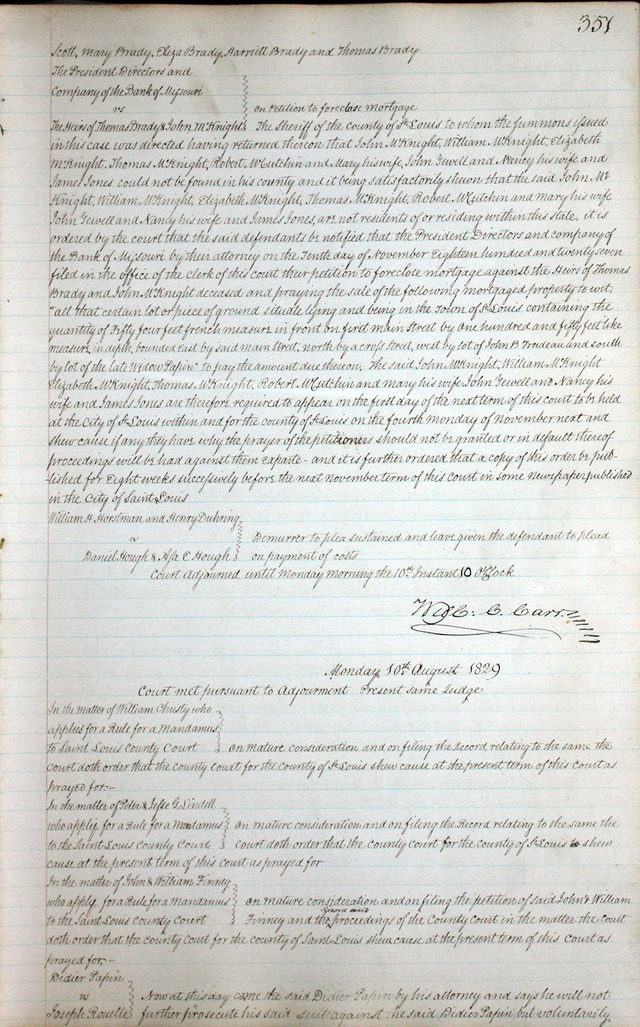 351
Scott, Mary Brady, Eliza Brady, Harriett Brady and Thomas Brady
The President Directors and
Company of the Bank of Missouri
vs
on Petition to foreclose mortgage
The Heirs of Thomas Brady & John McKnight
The Sheriff of the county of St Louis to whom the summons issued
in this case was directed having returned thereon that John McKnight, William McKnight, Elizabeth
McKnight, Thomas McKnight, Robert McCutchin and Mary his wife, John Gewell and Nancy his wife and
James Jones could not be found in his county and it being satisfactorily shewn that the said John Mc
Knight, William McKnight, Elizabeth McKnight, Thomas McKnight, Robert McCutchin and Mary his wife
John Gewell and Nancy his wife and James Jones, are not residents of or residing within this state, it is
ordered by the court that the said defendants be notified that the President Directors and company of
the Bank of Missouri by their attorney on the Tenth day of November Eighteen hundred and twenty seven
filed in the office of the clerk of this court their petition to foreclose mortgage against the Heirs of Thomas
Brady and John McKnight deceased and praying the sale of the following mortgaged property to wit;
"all that certain lot or piece of ground situate lying and being in the town of St Louis containing the
quantity of Fifty four feet french measure in front on first main Street by one hundred and fifty feet like
measure in depth, bounded east by said main street, north by a cross street, west by lot of John B Trudeau and south
by lot of the late widow Papin" to pay the amount due thereon, The said John McKnight, William McKnight
Elizabeth McKnight, Thomas McKnight, Robert McCutchin and mary his wife John Gewell and Nancy his
wife and James Jones are therefore required to appear on the first day of the next term of this court to be held
at the City of St Louis within and for the county of St Louis on the fourth monday of November next and
shew cause if any they have why the prayer of the petitioners should not be granted or in default thereof
proceedings will be had against them exparte - and it is further ordered that a copy of this order be pub-
lished for Eight weeks successively before the next November term of this court in some Newspaper published
in the City of Saint Louis
William H. Horstman and Henry Duhring
vs
Demurrer to plea sustained and leave given the defendant to plead
Daniel Hough & Asa E Hough
on payment of costs
Court Adjourned until Monday morning the 10th Instant 10 O'Clock
Wm C. Carr
Monday 10th August 1829
Court met pursuant to Adjourment Present same Judge
In the matter of William Christy who
applies for a Rule for a Mandamus
to Saint Louis County Court
on mature consideration and on filing the Record relating to the same the
court doth order that the county court for the county of St Louis shew cause at the present term of this court as
prayed for -
In the matter of Peter & Jesse G. Lindell
who apply for a Rule for a Mandamus
on mature consideration and on filing the Record relating to the same the
to the Saint Louis County Court
court doth order that the county Court for the county of St Louis to shew
cause at the present term of this court as prayed for
In the matter of John & William Finney
who apply for a Rule for a Mandamus
on mature consideration and on filing the petition of said John & William
to the Saint Louis County Court
Finney and the Record and proceedings of the County court in the matter the Court
doth order that the county court for the county of Saint Louis shew cause at the present term of this court as
prayed for -
Didier Papin
vs
Now at this day came the said Didier Papin by his attorney and says he will not
Joseph Rouelle
further prosecute his said suit against the said Didier Papin but voluntarily